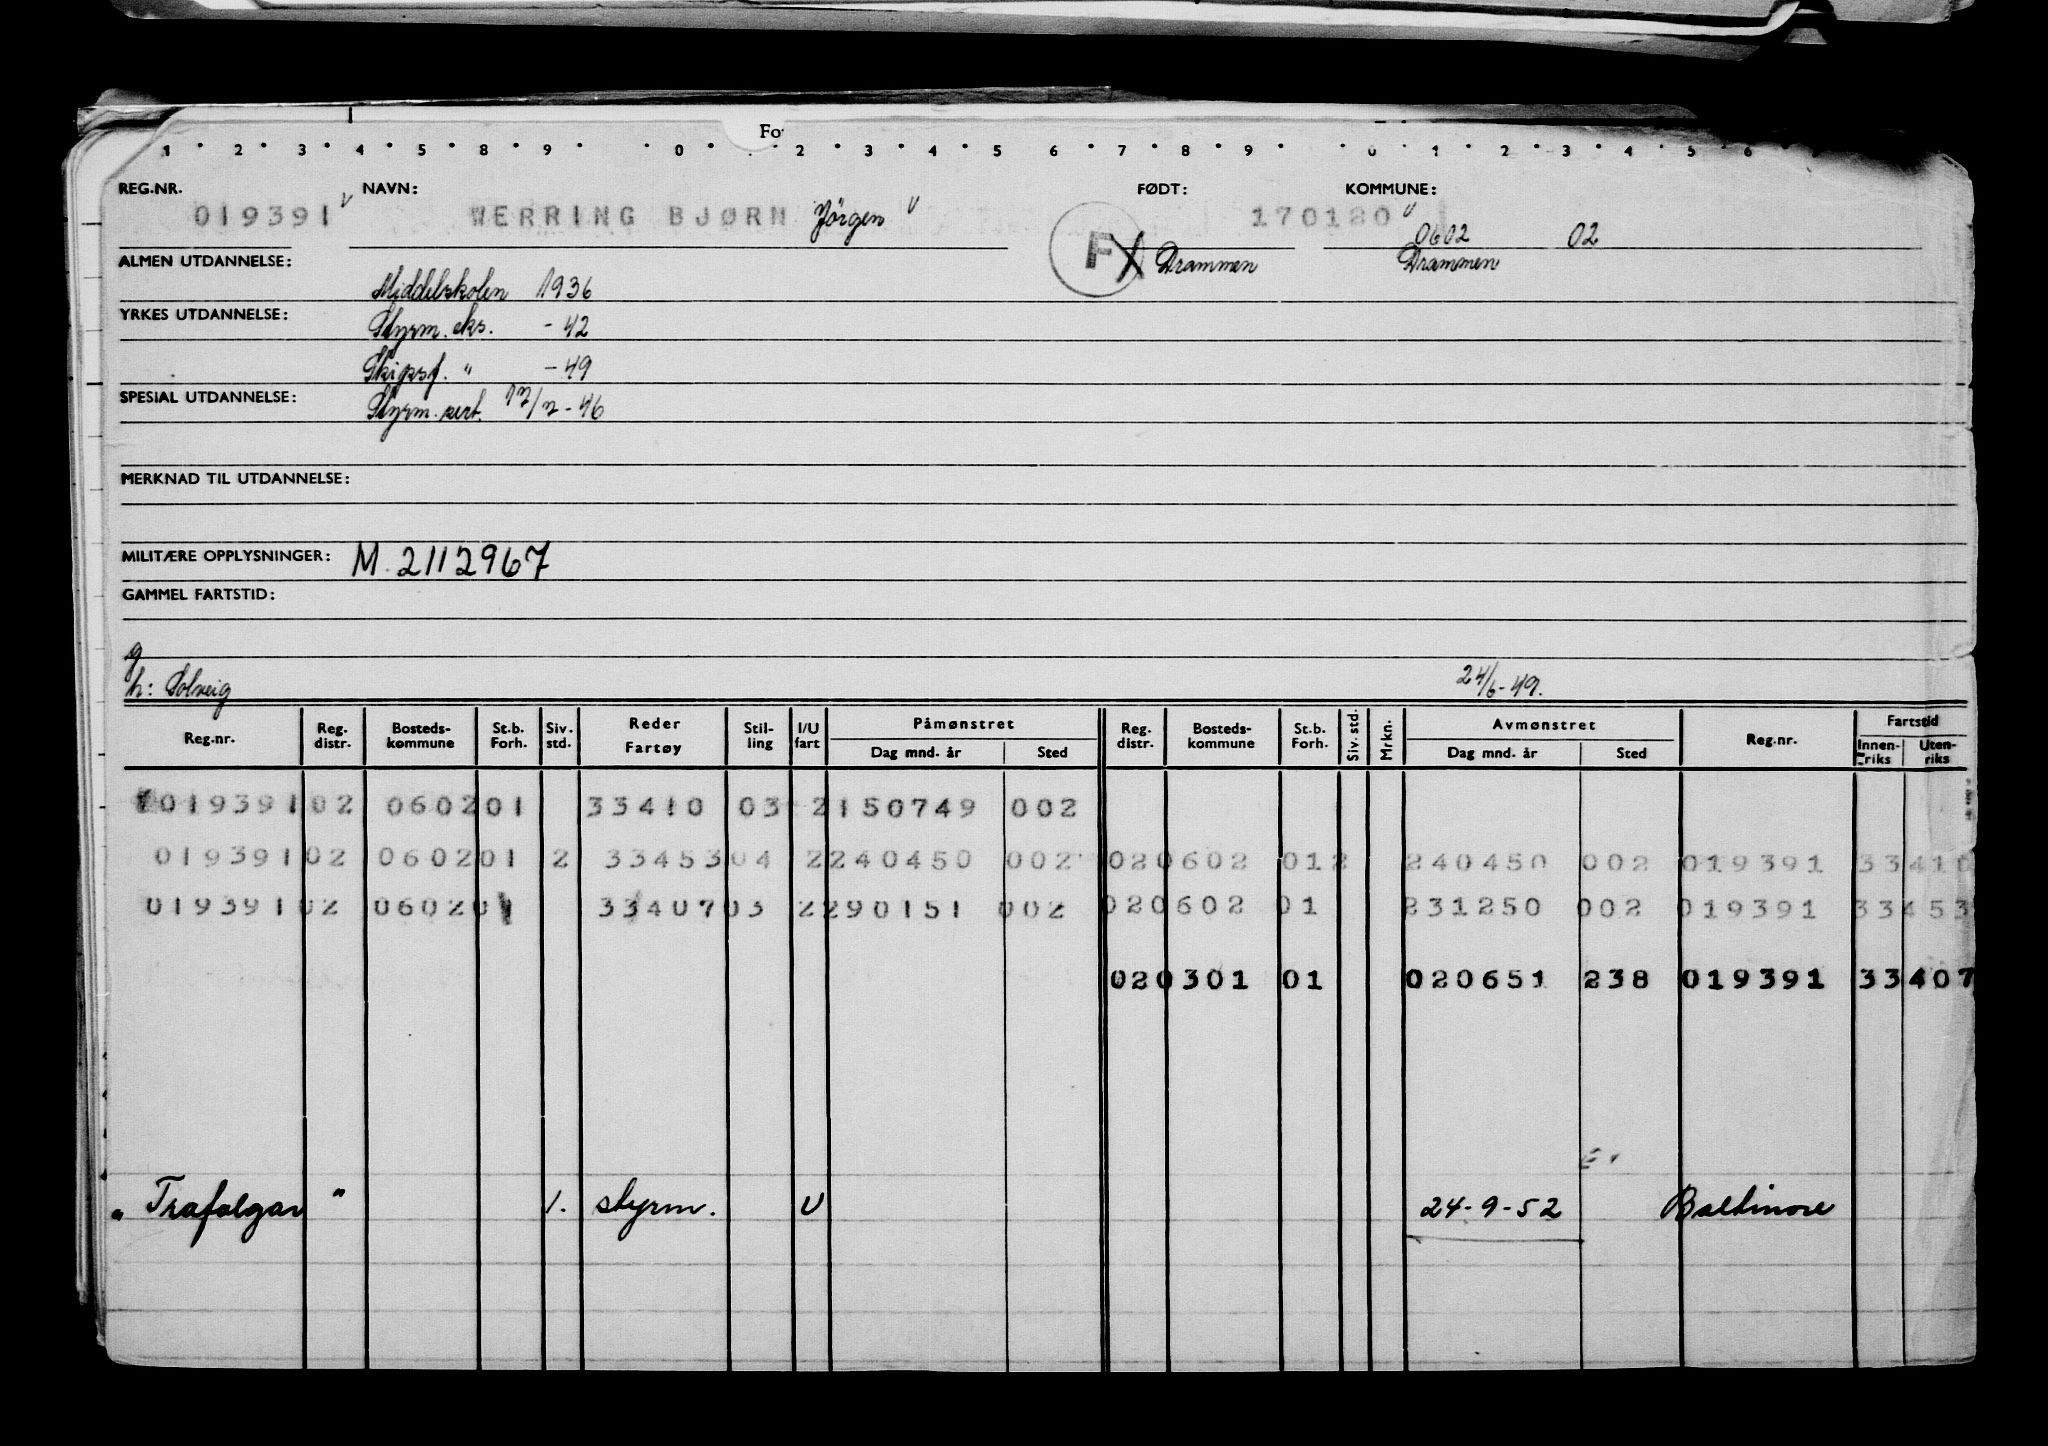 Fo
1 · 2 · 3 · 4 · 5 · 8 · 9 · · 0 · · 2 · 3 · 4 · 5 · 6 · 7 · 8 · 9 · · 0 · 1 · 2 · 3 · 4 · 5 · 6
REG.NR. NAVN: FØDT: KOMMUNE:
019391 WERRING BJØRN Jörgen F 170120 0602 02
ALMEN UTDANNELSE: Drammen Drammen
Middelskolen 1936
YRKES UTDANNELSE: Styrm. eks. - 42
Skipsf. " - 49
SPESIAL UTDANNELSE: Styrm. sert. - 46
MERKNAD TIL UTDANNELSE:
MILITÆRE OPPLYSNINGER: M. 2112967
GAMMEL FARTSTID:
g
h: Solveig 24/6-49.
Reg.nr. Reg. distr. Bosteds- kommune St.b. Forh. Siv. std. Reder Fartøy Stil- ling I/U fart Påmønstret Dag mnd. år Sted Reg. distr. Bosteds- kommune St.b. Forh. Siv. std. Mrkn. Avmønstret Dag mnd. år Sted Reg.nr. Fartstid Innen- riks Uten- riks
019391 02 0602 01 33410 03 2 150749 002
019391 02 0602 01 2 33453 04 2 240450 002 02 0602 01 2 240450 002 019391 33410
019391 02 0602 01 33407 03 2 290151 002 02 0602 01 231250 002 019391 33453
02 0301 01 020651 238 019391 33407
" Trafalgar " 1. styrm. U 24-9-52 Baltimore